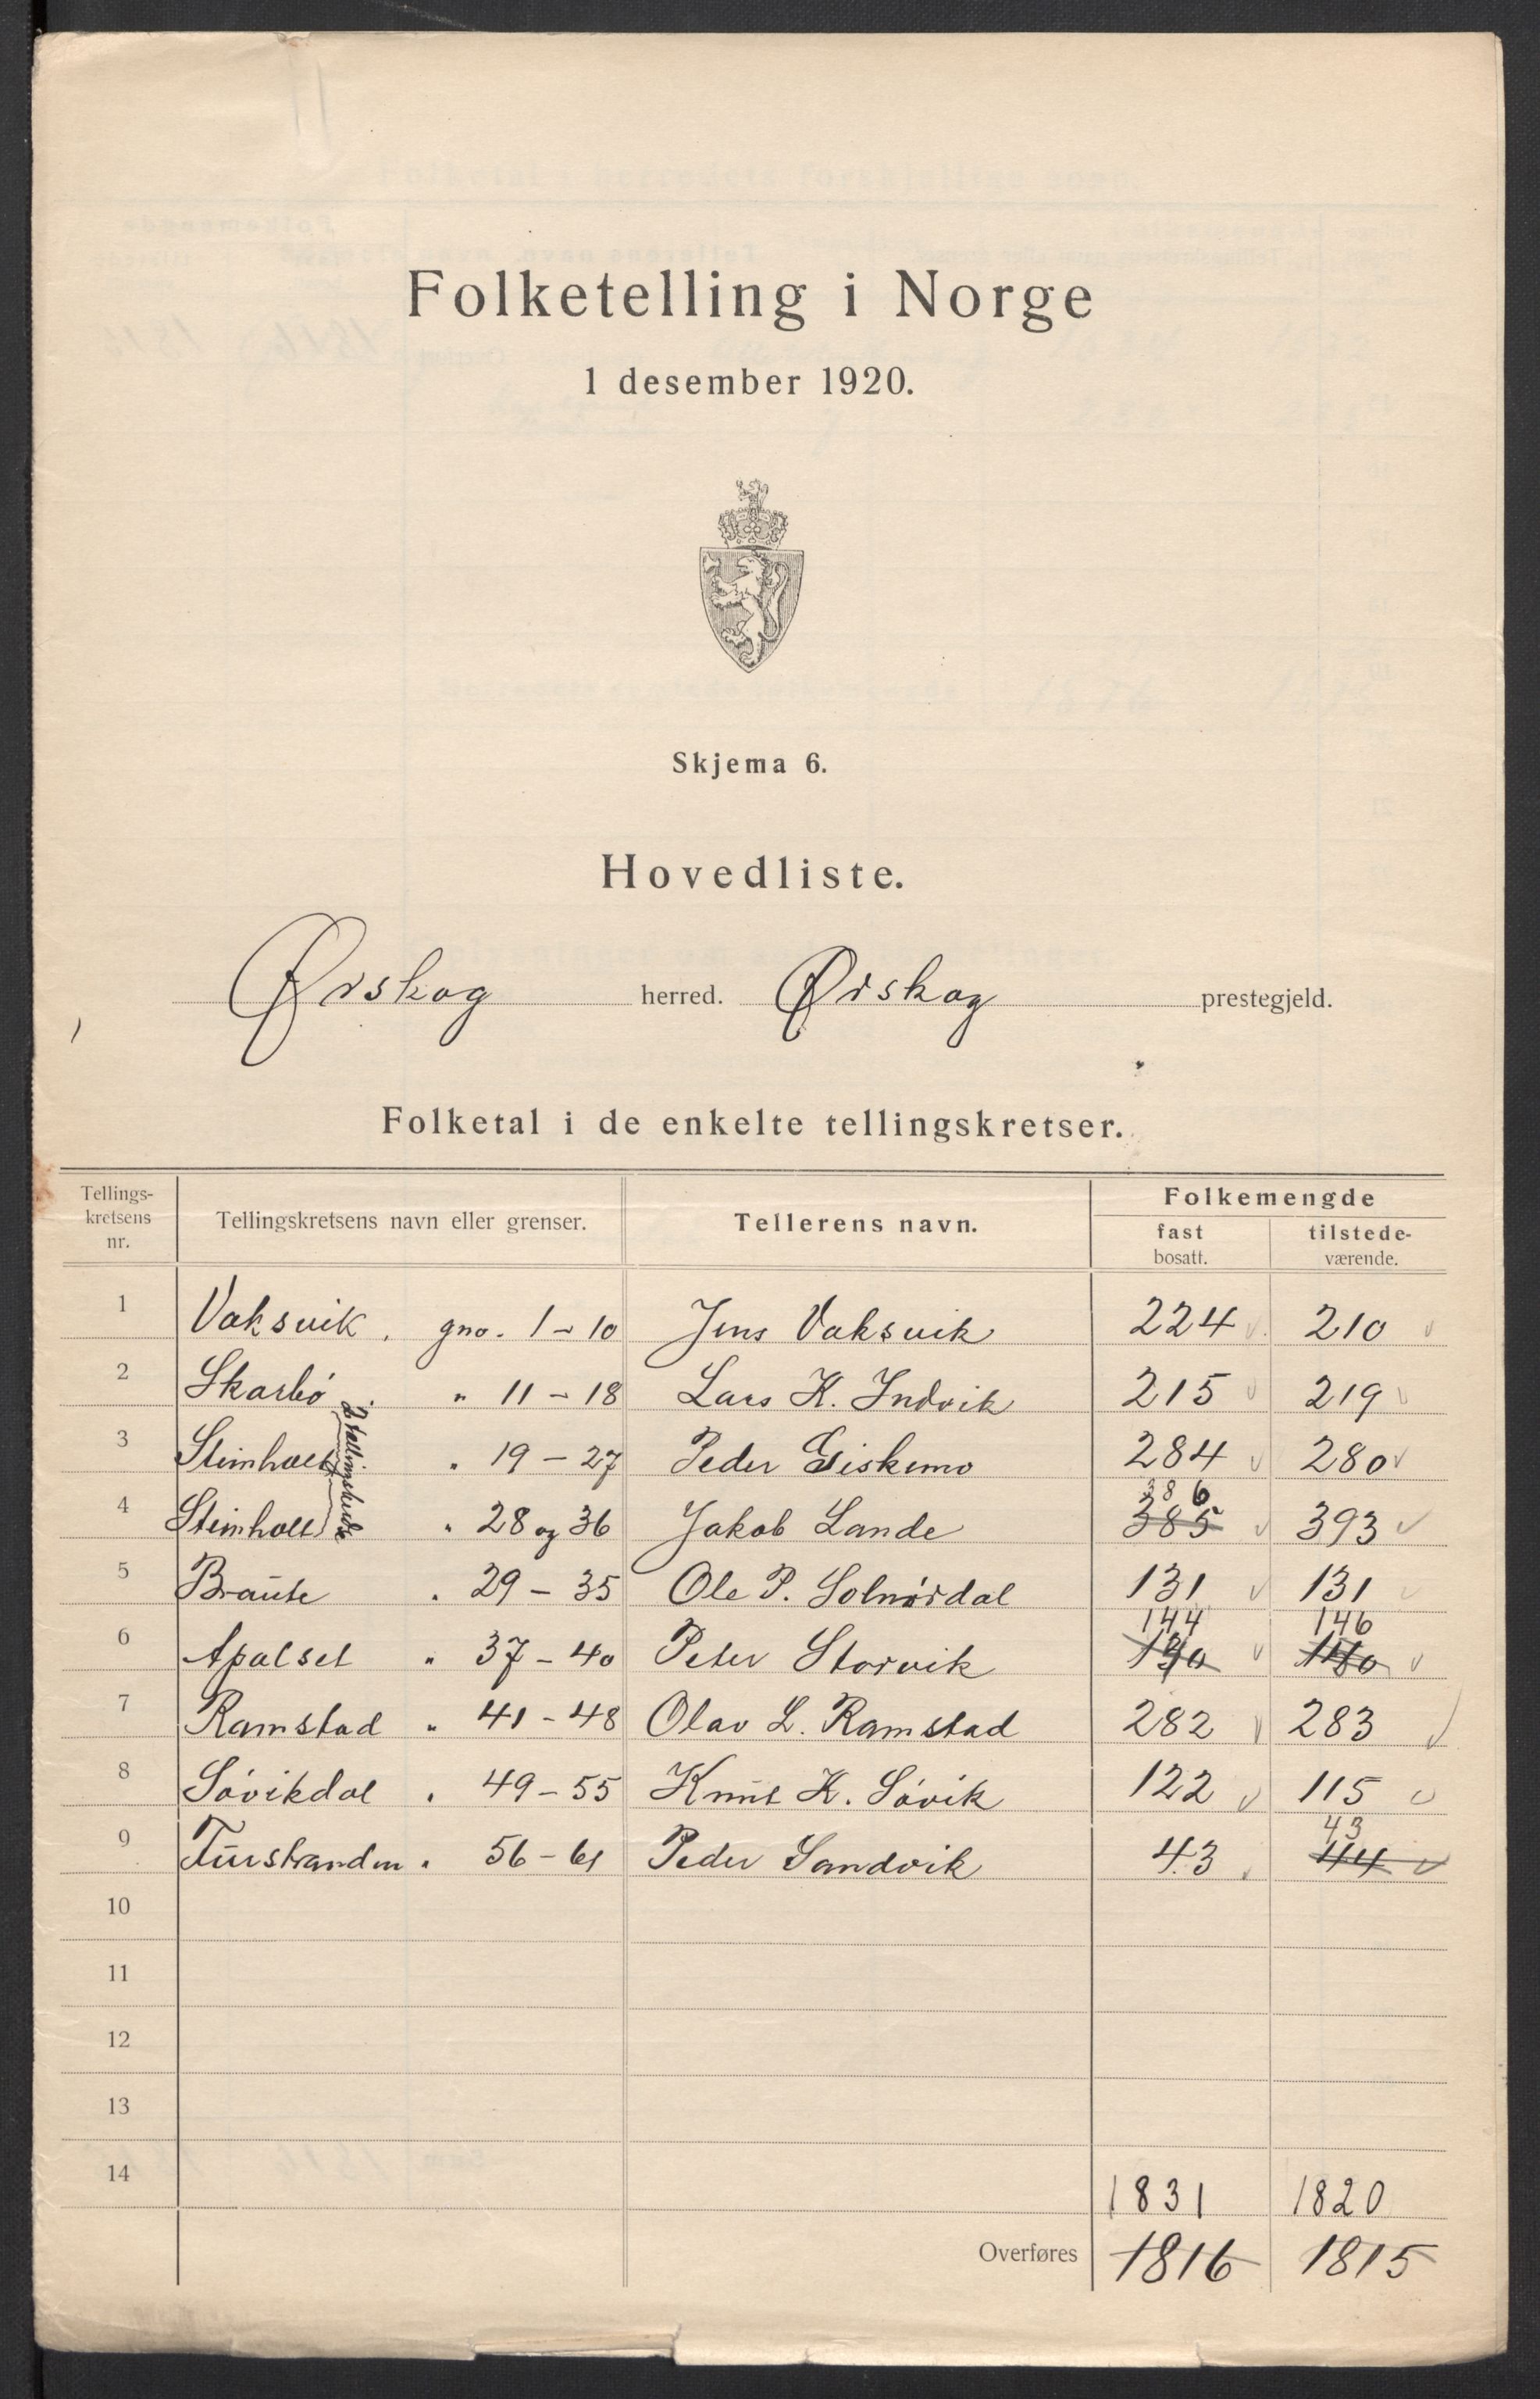 Folketelling i Norge
1 desember 1920.
Skjema 6.
Hovedliste.
Ørskog herred. Ørskog prestegjeld.
Folketal i de enkelte tellingskretser.
Tellings-
kretsens
nr.
Tellingskretsens navn eller grenser.
Tellerens navn.
Folkemengde
fast
bosatt.
tilstede-
værende.
1 Vaksvik. gno. 1 - 10 Jens Vaksvik 224 210
2 Skarbø " 11 - 18 Lars K. Indvik 215 219
3 Stimholt " 19 - 27 Peder Giskemo 284 280
386
4 Stimholt " 28 og 36 Jakob Lande 385 393
5 Braute " 29 - 35 Ole P. Solnørdal 131 131
144 146
6 Apalset " 37 - 40 Peter Storvik
7 Ramstad " 41 - 48 Olav L. Ramstad 282 283
8 Søvikdal " 49 - 55 Knut K. Søvik 122 115
43
9 Turstranden " 56 - 61 Peder Sandvik 43 44
10
11
12
13
14
1831 1820
Overføres 1816 1815